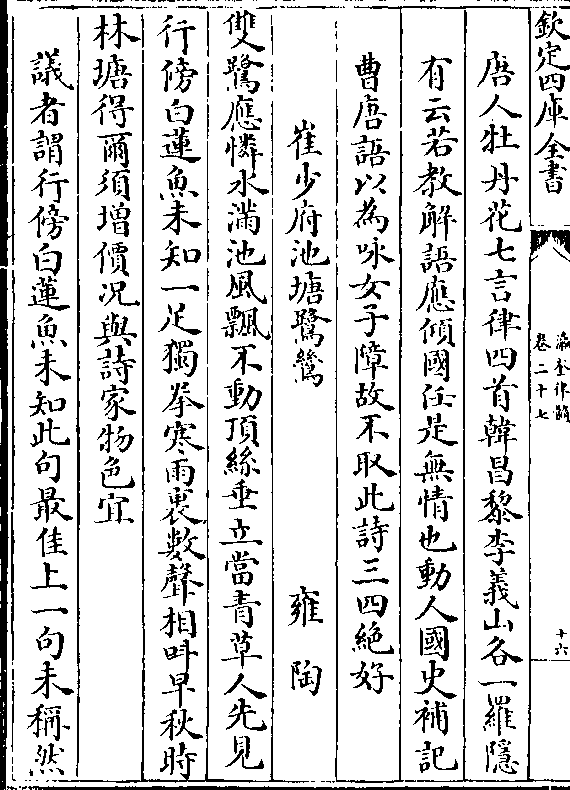 欽定四庫全書
瀛奎律髓
卷二十七
十六
唐人牡丹花七言律四首韓昌黎李義山各一羅隱
有云若教解語應傾國任是無情也動人國史補記
曹唐語以為咏女子障故不取此詩三四絶好
崔少府池塘鷺鷥 雍陶
雙鷺應憐水滿池風飄不動頂絲垂立當青草人先見
行傍白蓮魚未知一足獨拳寒雨裏數聲相呌早秋時
林塘得爾須增價况與詩家物色宜
議者謂行傍白蓮魚未知此句最佳上一句未稱然